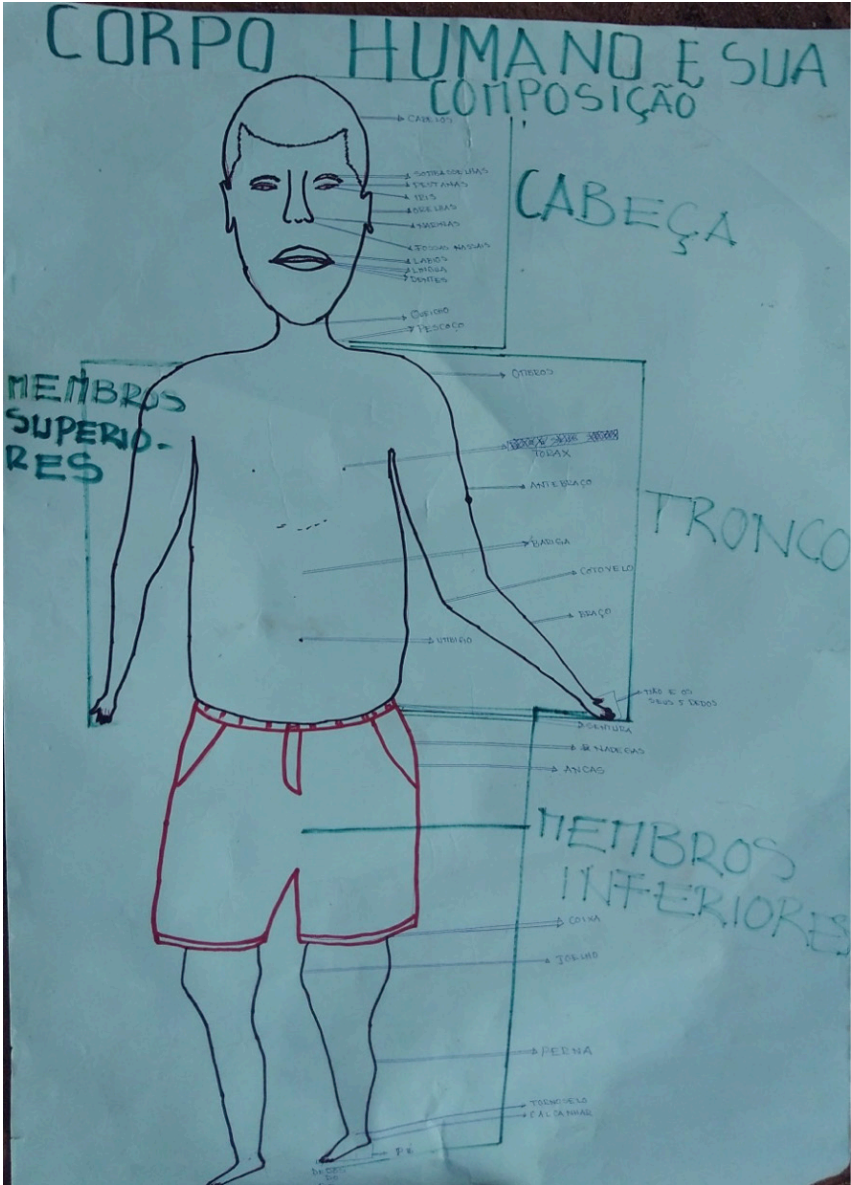 CORPO HUMANO E SUA
COMPOSIÇÃO
CABELOS
SOBRANCELHAS
PESTANAS
IRIS
ORELHAS
NARINAS
FOSSAS NASSAIS
LABIOS
DENTES
QUEICHO
PESCOÇO
CABEÇA
MEMBROS
SUPERIO-
RES
OMBROS
TORAX
ANTEBRAÇO
BARIGA
COTOVELO
BRAÇO
UMBIGO
MÃO E OS
SEUS 5 DEDOS
TRONCO
CENTURA
NADEGAS
ANCAS
MEMBROS
INFERIORES
COIXA
JOELHO
PERNA
TORNOZELO
CALCANHAR
PÉ
DEDOS
DO